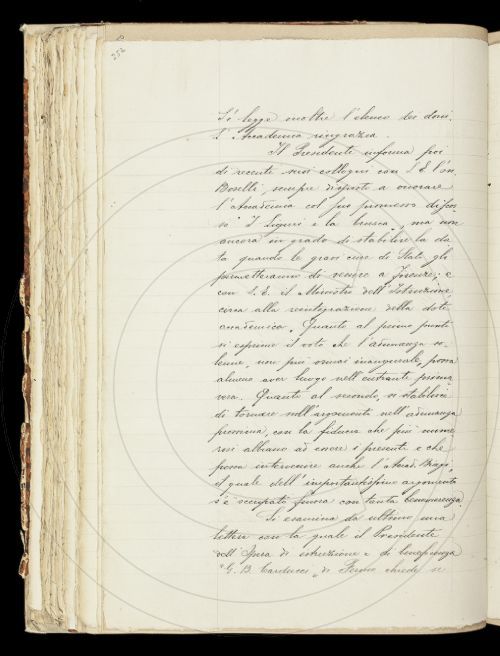 252
Si legge inoltre l'elenco dei doni.
L'Accademia ringrazia.
Il Presidente informa poi
di recenti suoi colloqui con S. E. l'on.
Boselli, sempre disposto a onorare
l'Accademia col suo promesso discor-
so "I Liguri e la Crusca", ma non
ancora in grado di stabilire la da-
ta quando le gravi cure di Stato gli
permetteranno di venire a Firenze; e
con S. E. il Ministro dell'Istruzione
circa alla reintegrazione della dote
accademica. Quanto al primo punto
si esprime il voto che l'adunanza so-
lenne, non più ormai inaugurale, possa
almeno aver luogo nell'entrante prima
vera. Quanto al secondo, si stabilisce
di tornare sull'argomento nell'adunanza
prossima, con la fiducia che più nume
rosi abbiano ad essere i presenti e che
possa intervenire anche l'Accad.
il quale dell'importantissimo argomento
s'è occupato finora con tanta benemerenza.
Si esamina da ultimo una
lettera con la quale il Presidente
dell'Opera di istruzione e di beneficenza
"G. B. Carducci" di Fermo chiede se